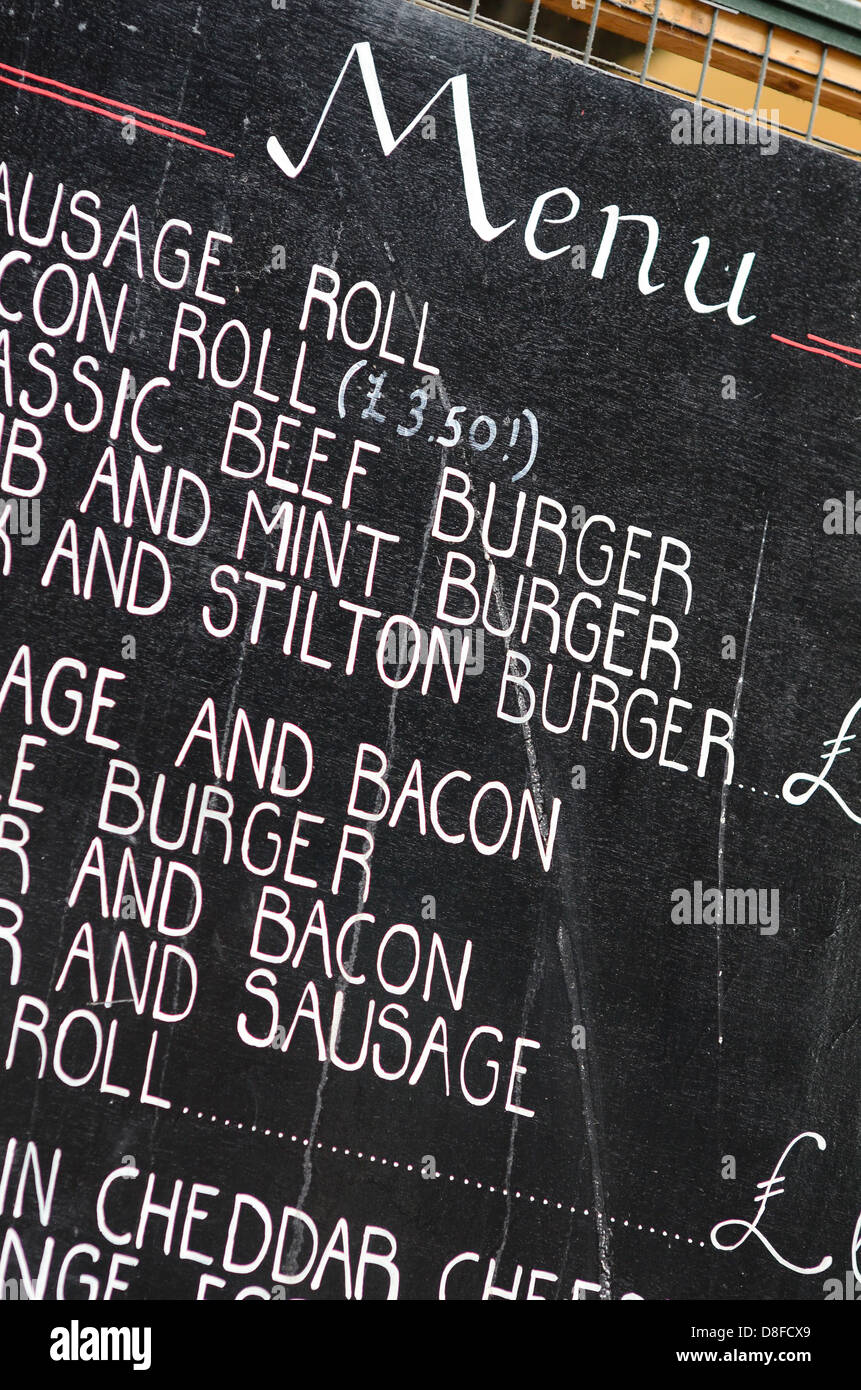 Menu
AUSAGE ROLL
CON ROLL (£3.50!)
ASSIC BEEF BURGER
MB AND MINT BURGER
K AND STILTON BURGER.....£
AGE AND BACON
LE BURGER
R AND BACON
R AND SAUSAGE
ROLL..............................£
IN CHEDDAR CHEES
NGE
alamy
Image ID: D8FCX9
www.alamy.com